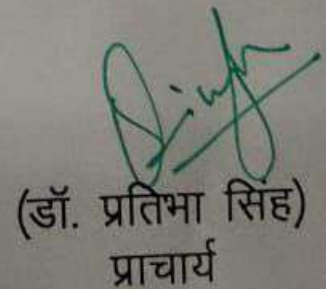 (डॉ. प्रतिभा सिंह)
प्राचार्य